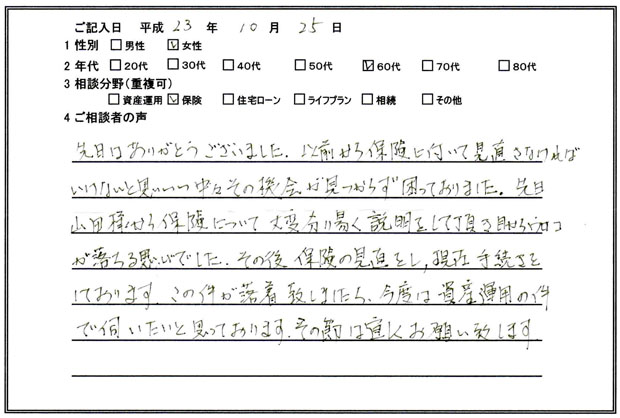 ご記入日 平成 23 年 10 月 25 日
1 性別 □男性 ☑女性
2 年代 □20代 □30代 □40代 □50代 ☑60代 □70代 □80代
3 相談分野(重複可)
□資産運用 ☑保険 □住宅ローン □ライフプラン □相続 □その他
4 ご相談者の声
先日はありがとうございました。以前から保険に付いて見直さなければ
いけないと思いつつ中々その機会が見つからず困っておりました。先日
山田様から保険について大変分り易く説明をして頂き目からウロコ
が落ちる思いでした。その後保険の見直をし、現在手続きを
しております。この件が落着致しましたら、今度は資産運用の件
で伺いたいと思っております。その節は宜しくお願い致します。